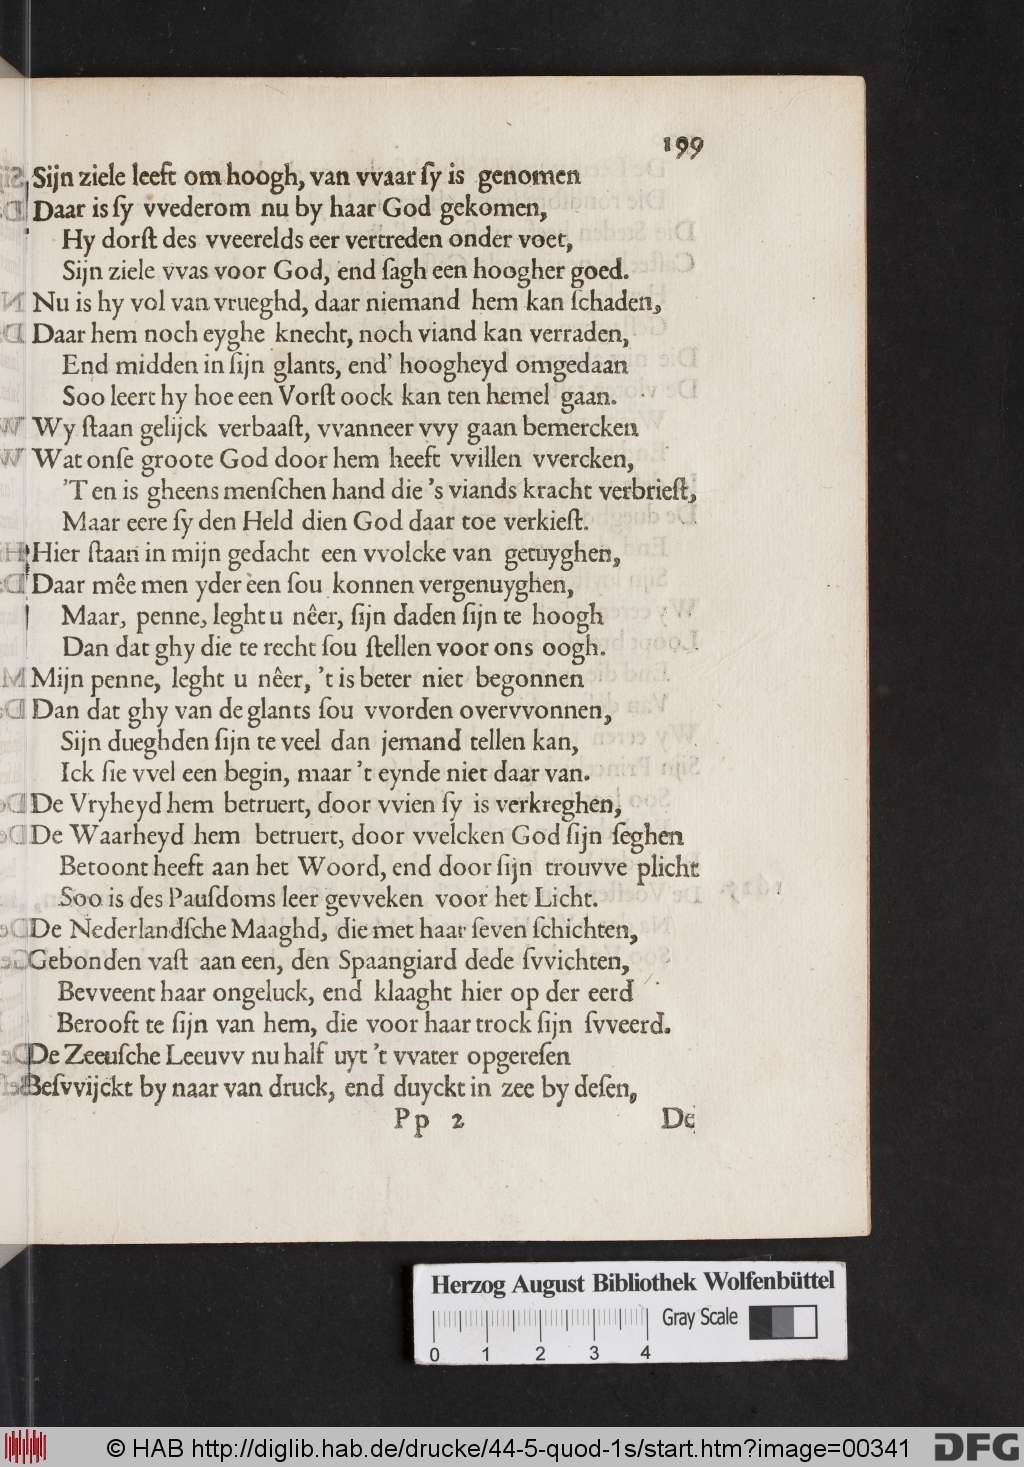 199
Sijn ziele leeft om hoogh, van vvaar ſy is genomen
Daar is ſy vvederom nu by haar God gekomen,
Hy dorſt des vveerelds eer vertreden onder voet,
Sijn ziele vvas voor God, end ſagh een hoogher goed.
Nu is hy vol van vrueghd, daar niemand hem kan ſchaden,
Daar hem noch eyghe knecht, noch viand kan verraden,
End midden in ſijn glants, end' hoogheyd omgedaan
Soo leert hy hoe een Vorſt oock kan ten hemel gaan.
Wy ſtaan gelijck verbaaſt, vvanneer vvy gaan bemercken
Wat onſe groote God door hem heeft vvillen vvercken,
'T en is gheens menſchen hand die 's viands kracht verbrieſt,
Maar eere ſy den Held dien God daar toe verkieſt.
Hier ſtaan in mijn gedacht een vvolcke van getuyghen,
Daar mêe men yder een ſou konnen vergenuyghen,
Maar, penne, leght u nêer, ſijn daden ſijn te hoogh
Dan dat ghy die te recht ſou ſtellen voor ons oogh.
Mijn penne, leght u nêer, 't is beter niet begonnen
Dan dat ghy van de glants ſou vvorden overvvonnen,
Sijn dueghden ſijn te veel dan jemand tellen kan,
Ick ſie vvel een begin, maar 't eynde niet daar van.
De Vryheyd hem betruert, door vvien ſy is verkreghen,
De Waarheyd hem betruert, door vvelcken God ſijn ſeghen
Betoont heeft aan het Woord, end door ſijn trouvve plicht
Soo is des Pauſdoms leer gevveken voor het Licht.
De Nederlandſche Maaghd, die met haar ſeven ſchichten,
Gebonden vaſt aan een, den Spaangiard dede ſvvichten,
Bevveent haar ongeluck, end klaaght hier op der eerd
Berooft te ſijn van hem, die voor haar trock ſijn ſvveerd.
De Zeeuſche Leeuvv nu half uyt 't vvater opgereſen
Beſvvijckt by naar van druck, end duyckt in zee by deſen,
Pp 2 De
Herzog August Bibliothek Wolfenbüttel
Gray Scale
0 1 2 3 4
© HAB http://diglib.hab.de/drucke/44-5-quod-1s/start.htm?image=00341 DFG